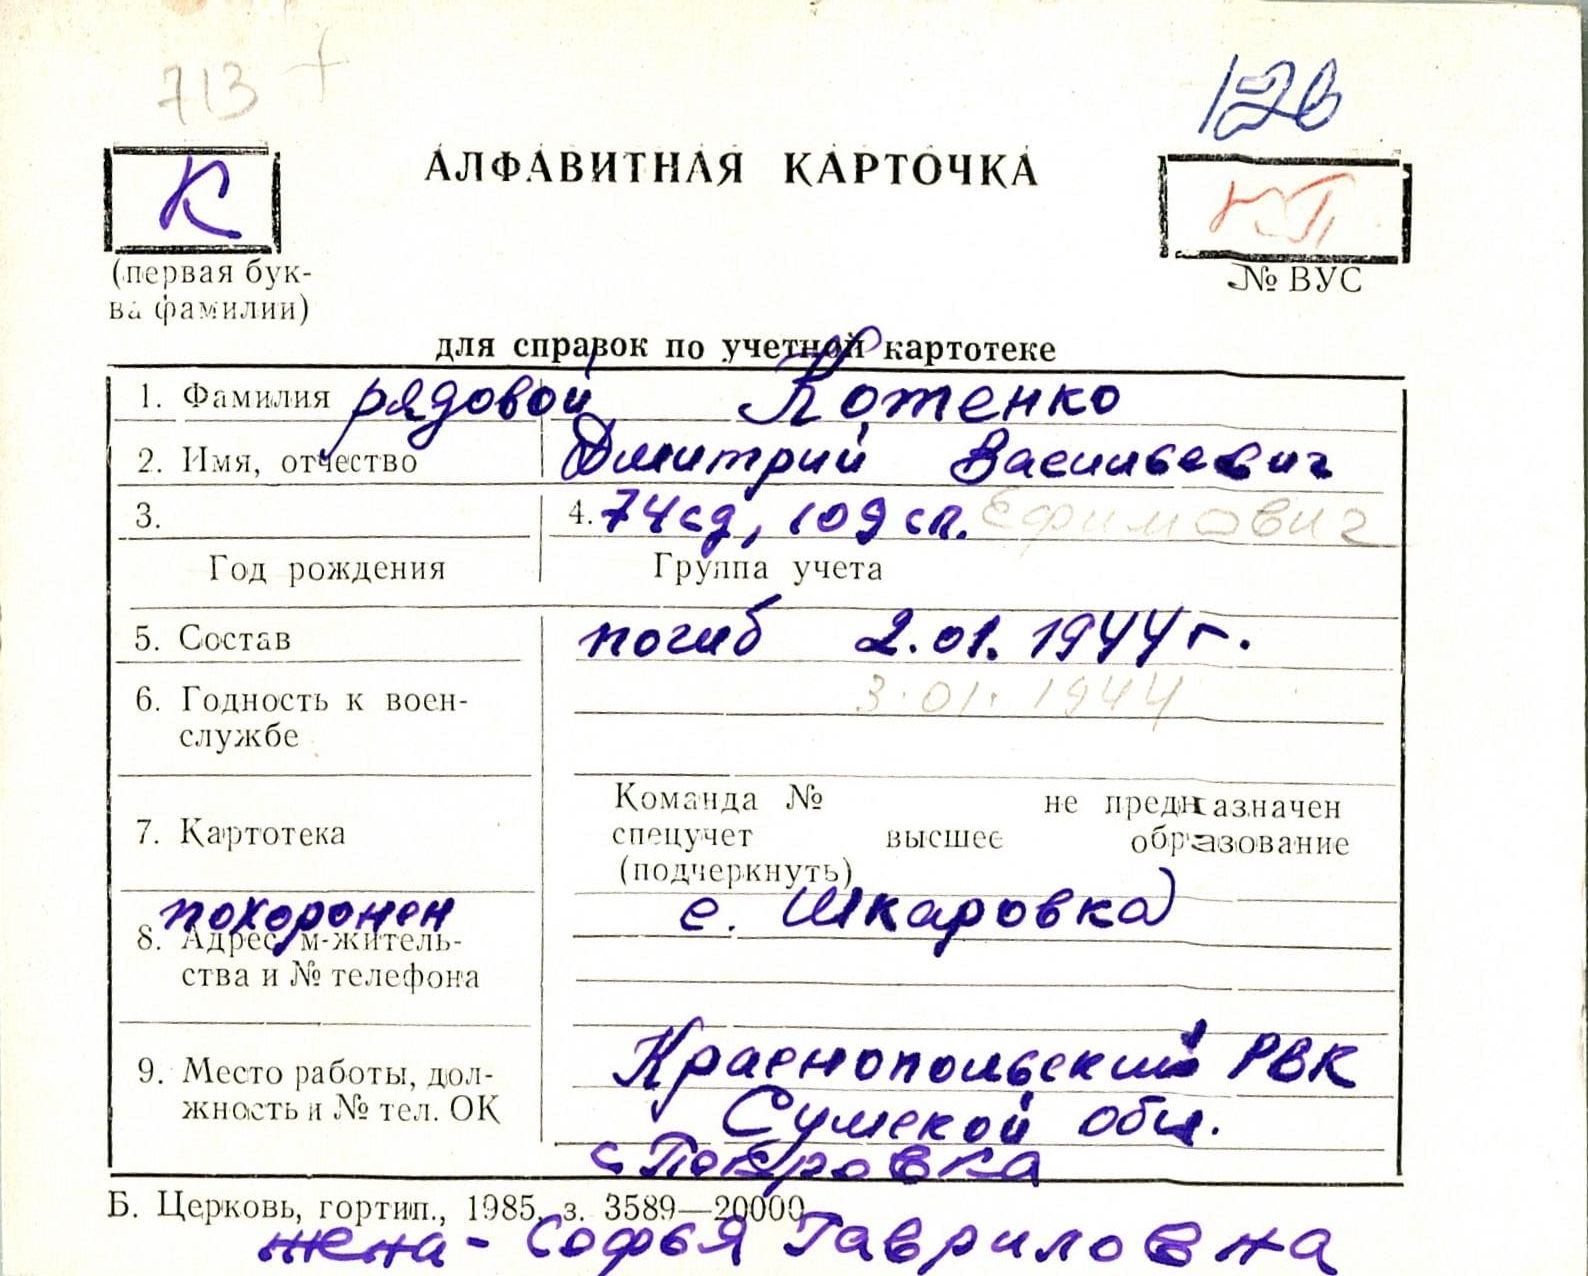 713 +
12в
К
АЛФАВИТНАЯ КАРТОЧКА
(первая бук-
ва фамилии)
№ ВУС
для справок по учетной картотеке
1. Фамилия рядовой Котенко
2. Имя, отчество Дмитрий Васильевич
3. 4. 74 сд, 109 сп. Ефимович
Год рождения Группа учета
5. Состав погиб 2.01.1944 г.
3.01.1944
6. Годность к воен-
службе
7. Картотека
Команда № не предназначен
спецучет высшее образование
(подчеркнуть)
похоронен с. Шкаровка
8. Адрес м-житель-
ства и № телефона
9. Место работы, дол-
жность и № тел. ОК
Краснопольский РВК
Сумской обл.
с Покровка
Б. Церковь, гортип., 1985, з. 3589—20000
жена - Софья Гавриловна